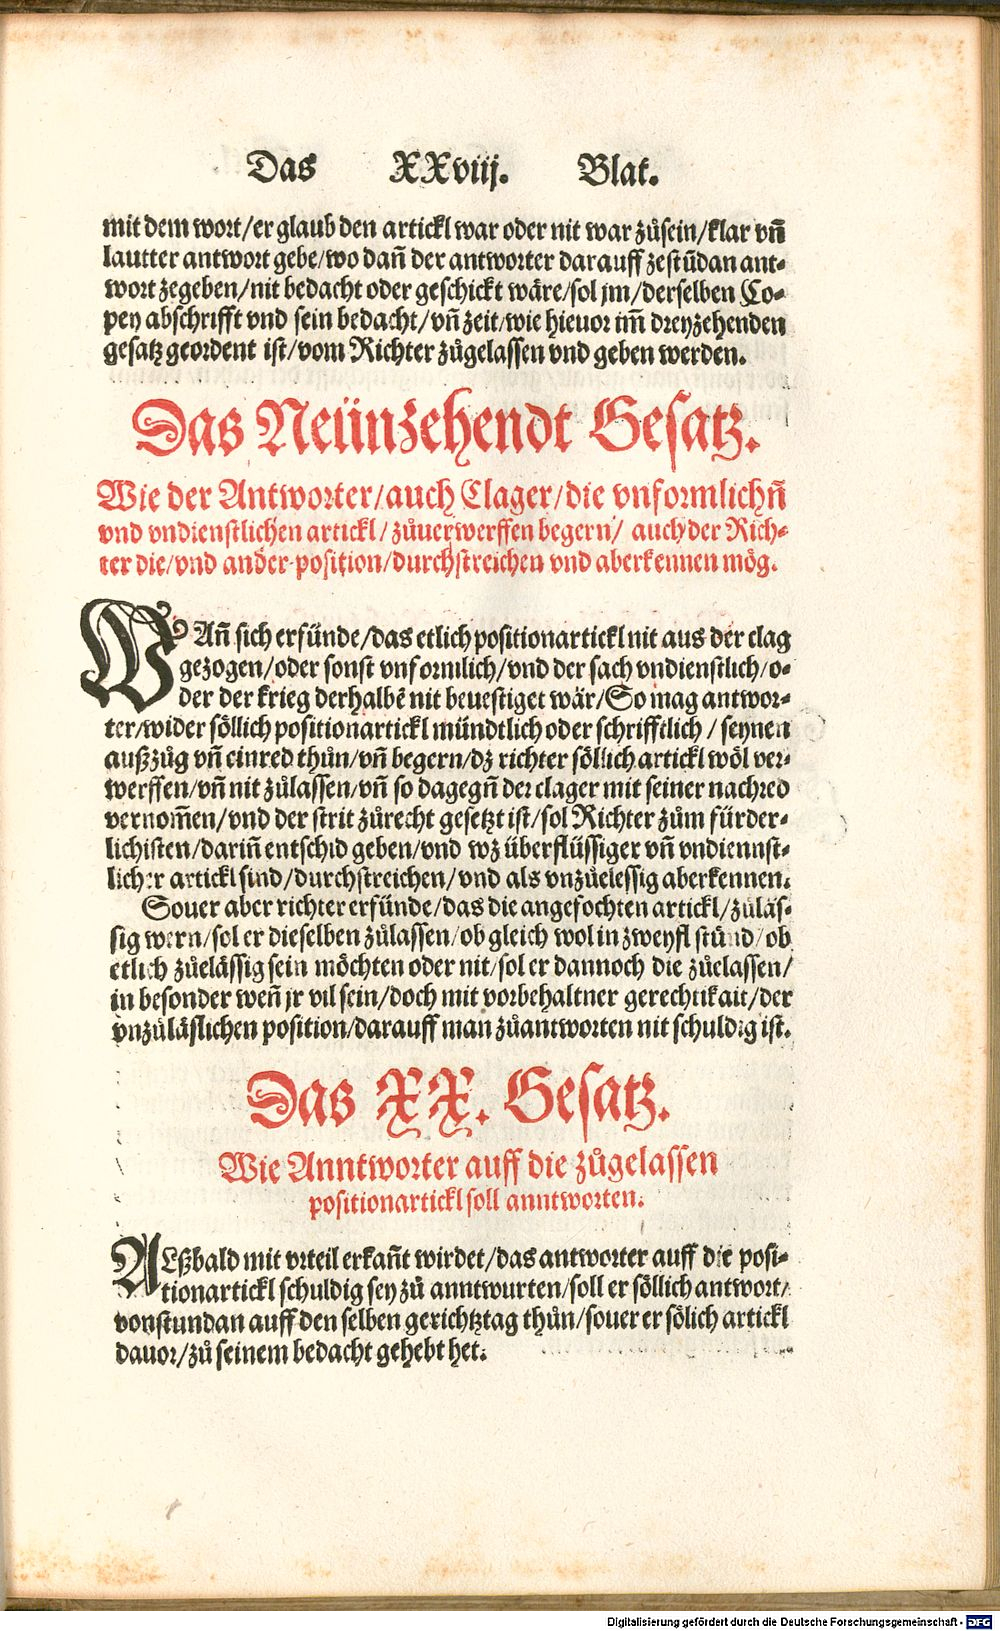 Das XXviij. Blat.
mit dem wort/er glaub den artickl war oder nit war zůsein/klar vñ
lautter antwort gebe/wo dañ der antworter darauff zestũdan ant-
wort zegeben/nit bedacht oder geschickt wäre/sol jm/derselben Co-
pey abschrifft vnd sein bedacht/vñ zeit/wie hieuor im̃ dreyzehenden
gesatz geordent ist/vom Richter zůgelassen vnd geben werden.
Das Neünzehendt Gesatz.
Wie der Antworter/auch Clager/die vnformlichñ
vnd vndienstlichen artickl/zůuerwerffen begern/ auch der Rich-
ter die/vnd ander position/durchstreichen vnd aberkennen mög.
WAñ sich erfünde/das etlich positionartickl nit aus der clag
gezogen/oder sonst vnformlich/vnd der sach vndienstlich/o-
der der krieg derhalbẽ nit beuestiget wär/So mag antwor-
ter/wider söllich positionartickl mündtlich oder schrifftlich/seynen
außzüg vñ einred thůn/vñ begern/dz richter söllich artickl wöl ver-
werffen/vñ nit zůlassen/vñ so dagegñ der clager mit seiner nachred
vernom̃en/vnd der strit zůrecht gesetzt ist/sol Richter zům fürder-
lichisten/dariñ entschid geben/vnd wz überflüssiger vñ vndiennst-
licher artickl sind/durchstreichen/vnd als vnzůelessig aberkennen.
Souer aber richter erfünde/das die angefochten artickl/zůläs-
sig wern/sol er dieselben zůlassen/ob gleich wol in zweyfl stünd/ob
etlich zůelässig sein möchten oder nit/sol er dannoch die zůelassen/
in besonder weñ jr vil sein/doch mit vorbehaltner gerechtikait/der
vnzůläslichen position/darauff man zůantworten nit schuldig ist.
Das XX. Gesatz.
Wie Anntworter auff die zůgelassen
positionartickl soll anntworten.
ALßbald mit vrteil erkañt wirdet/das antworter auff die posi-
tionartickl schuldig sey zů anntwurten/soll er söllich antwort/
vonstundan auff den selben gerichtztag thůn/souer er sölich artickl
dauor/zů seinem bedacht gehebt het.
Digitalisierung gefördert durch die Deutsche Forschungsgemeinschaft - DFG